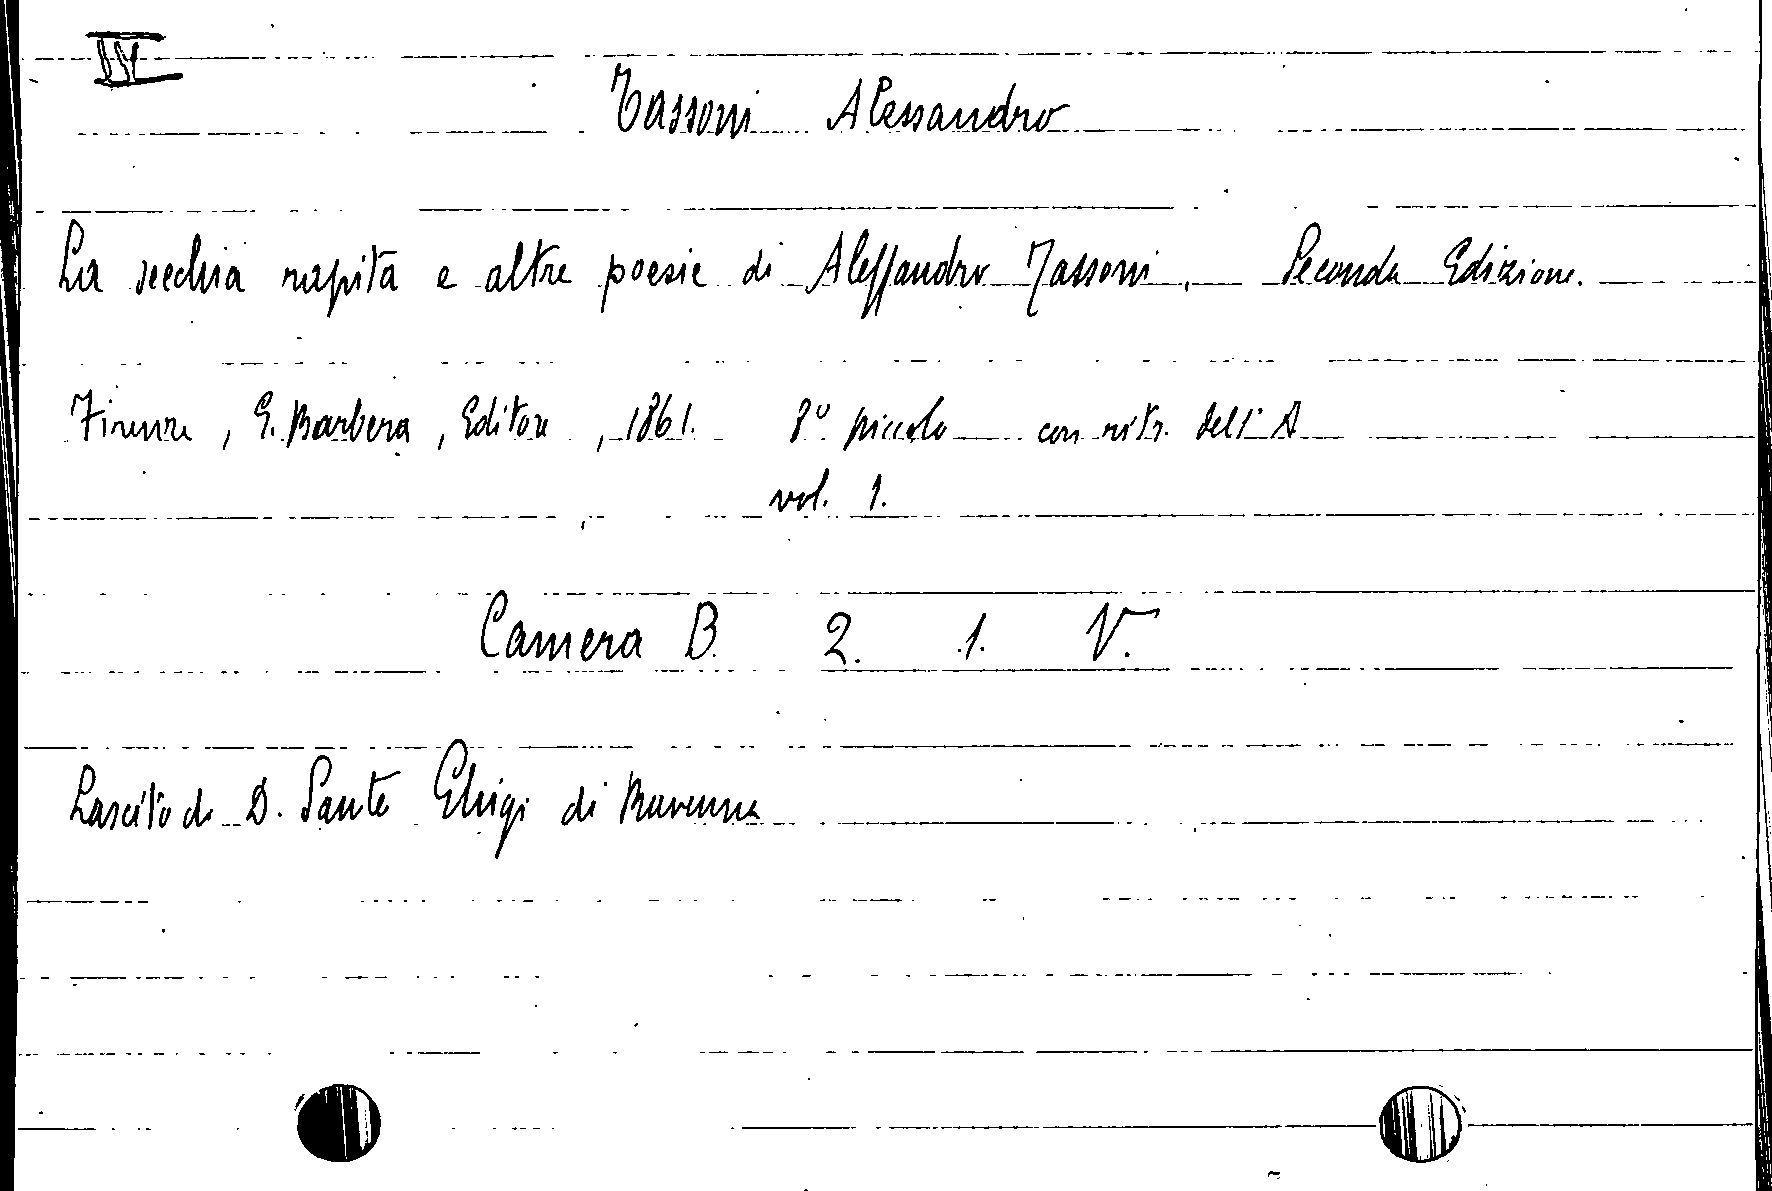 IV
Tassoni Alessandro
La secchia rapita e altre poesie di Alessandro Tassoni. Seconda Edizione.
Firenze, G. Barbera, Editore, 1861. 8º piccolo con ritr. dell'A
vol. 1.
Camera B. 2. 1. V.
Lascito di D. Sante Ghigi di Ravenna